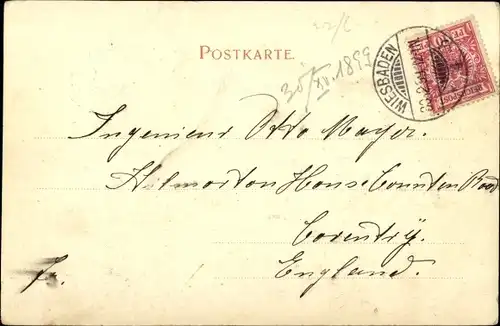 22/6
POSTKARTE.
30/XII.1899
WIESBADEN
Ingenieur Otto Mayer.
Holmorton House Bounten Road
Coventry.
England.
fr.